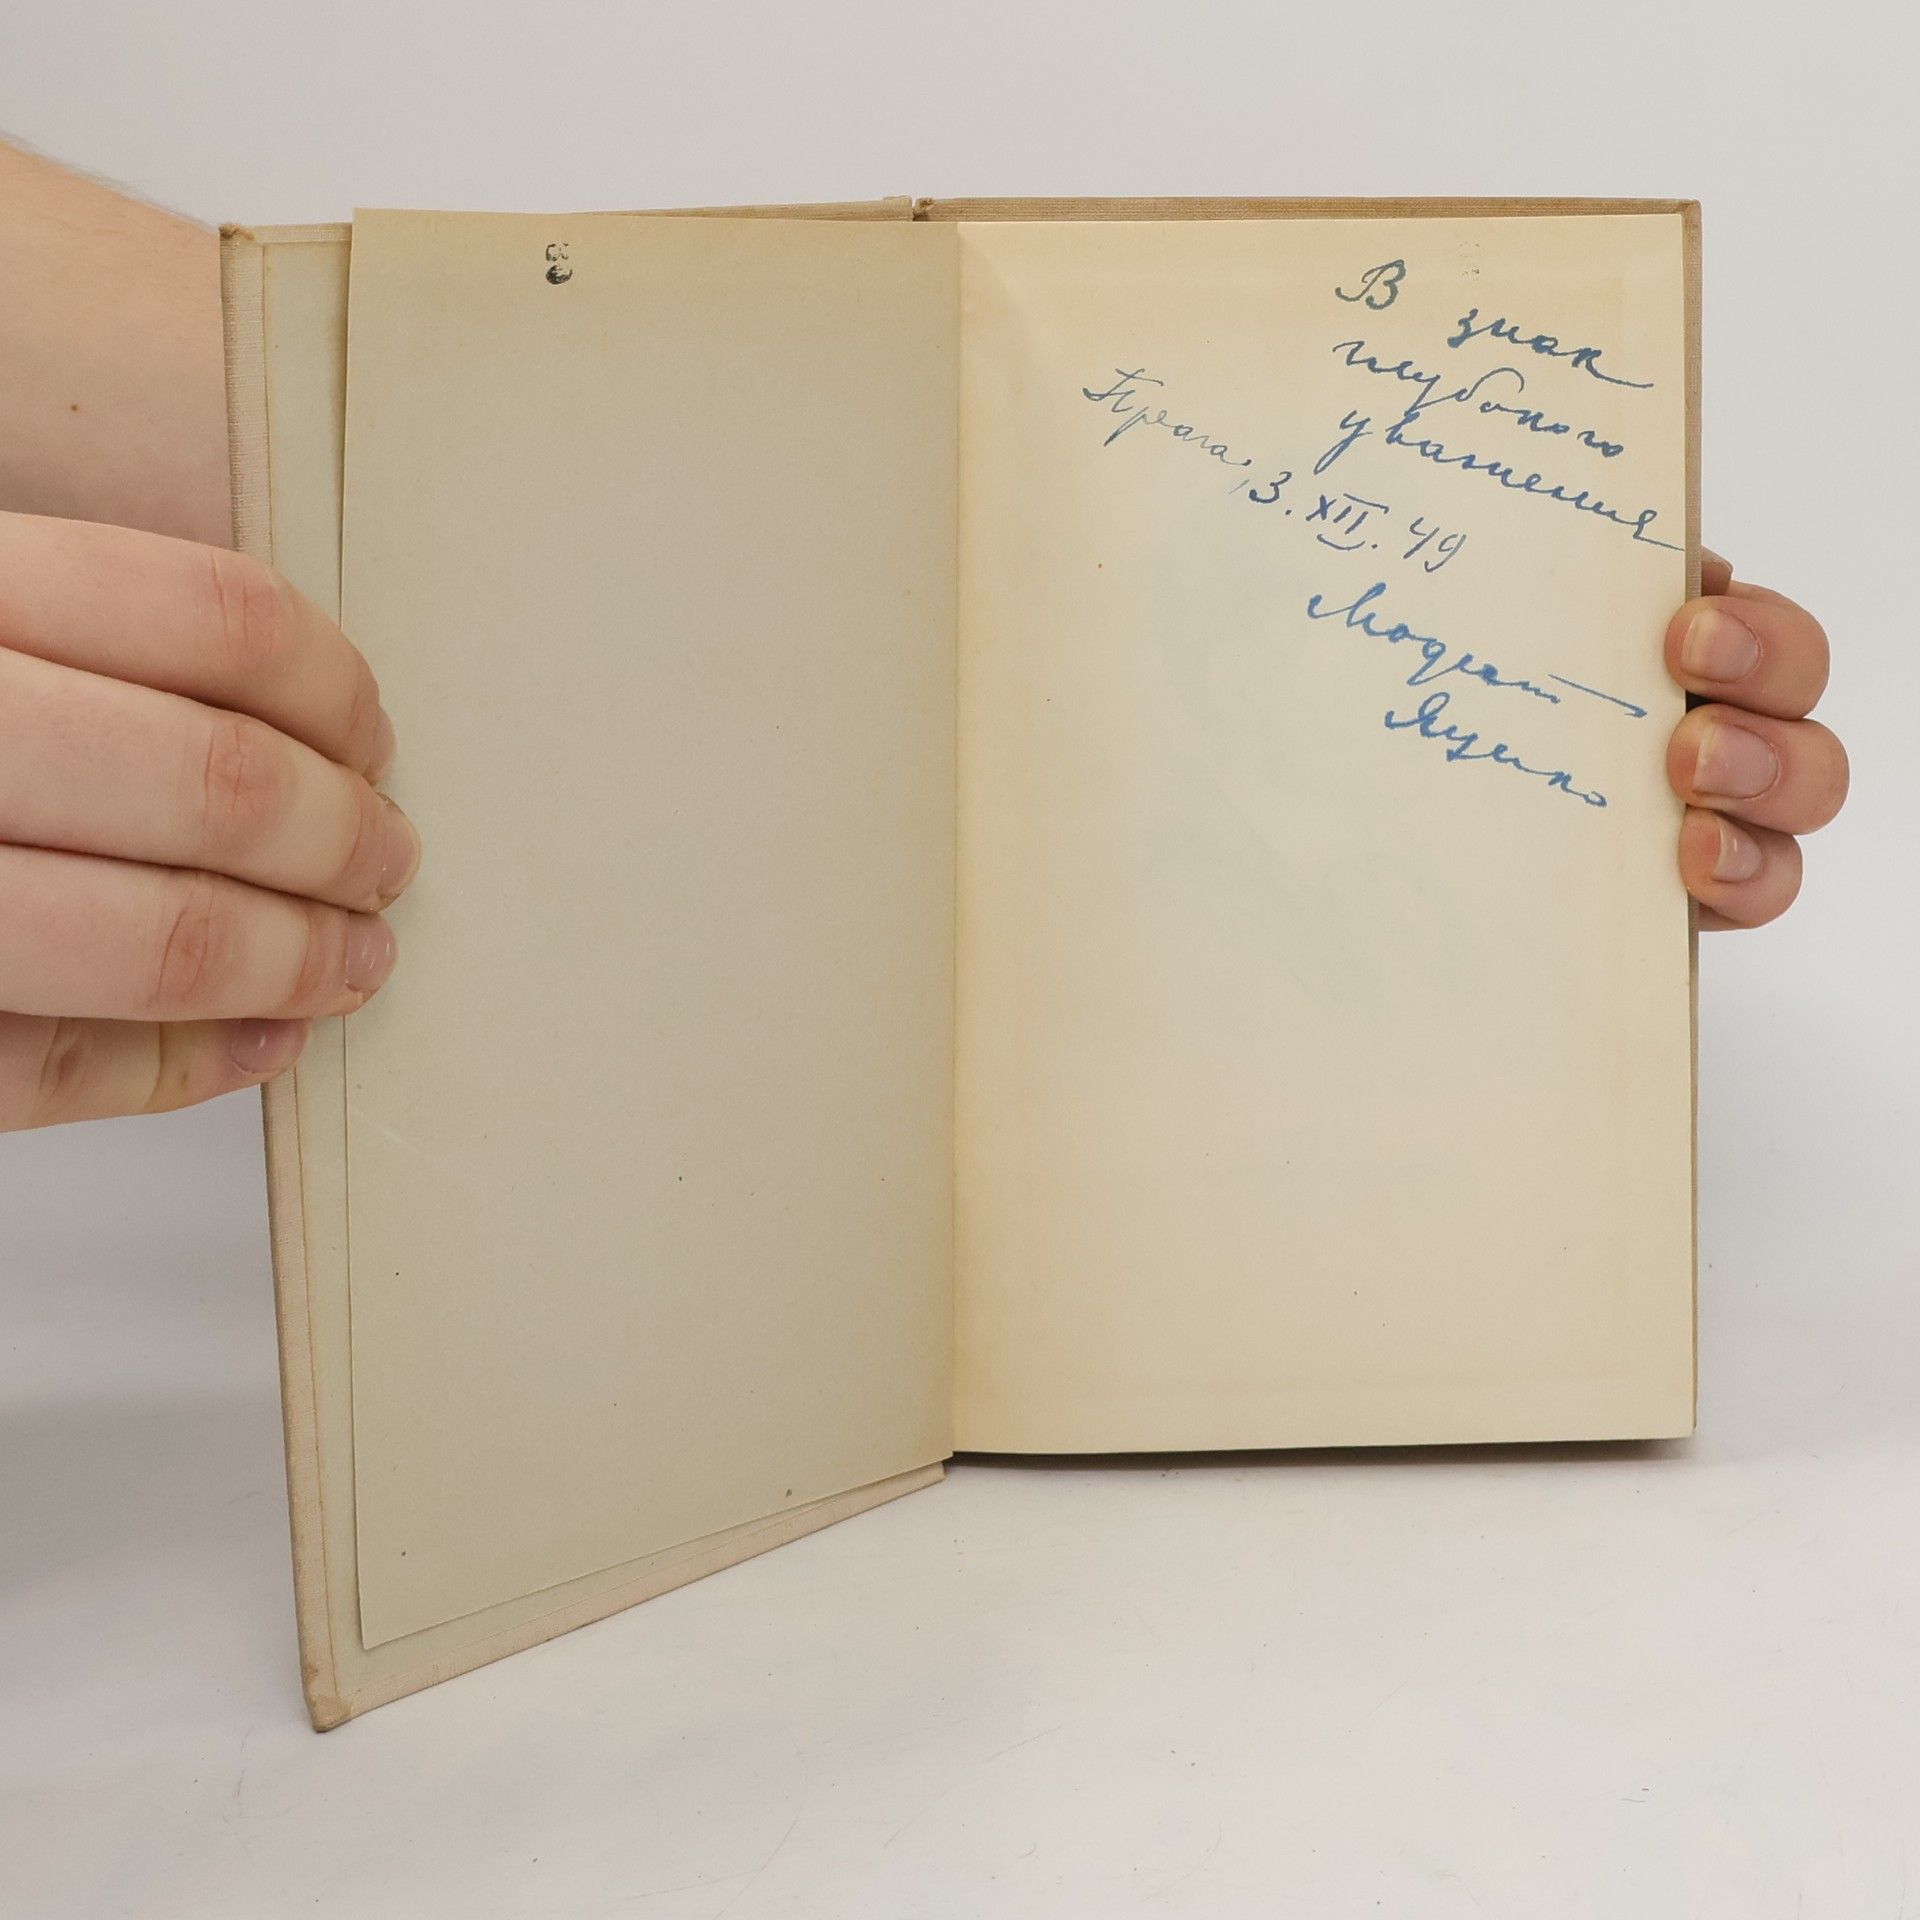 В знак
глубокого
уважения
Прага, 3. XII. 49
Модест
Яценко